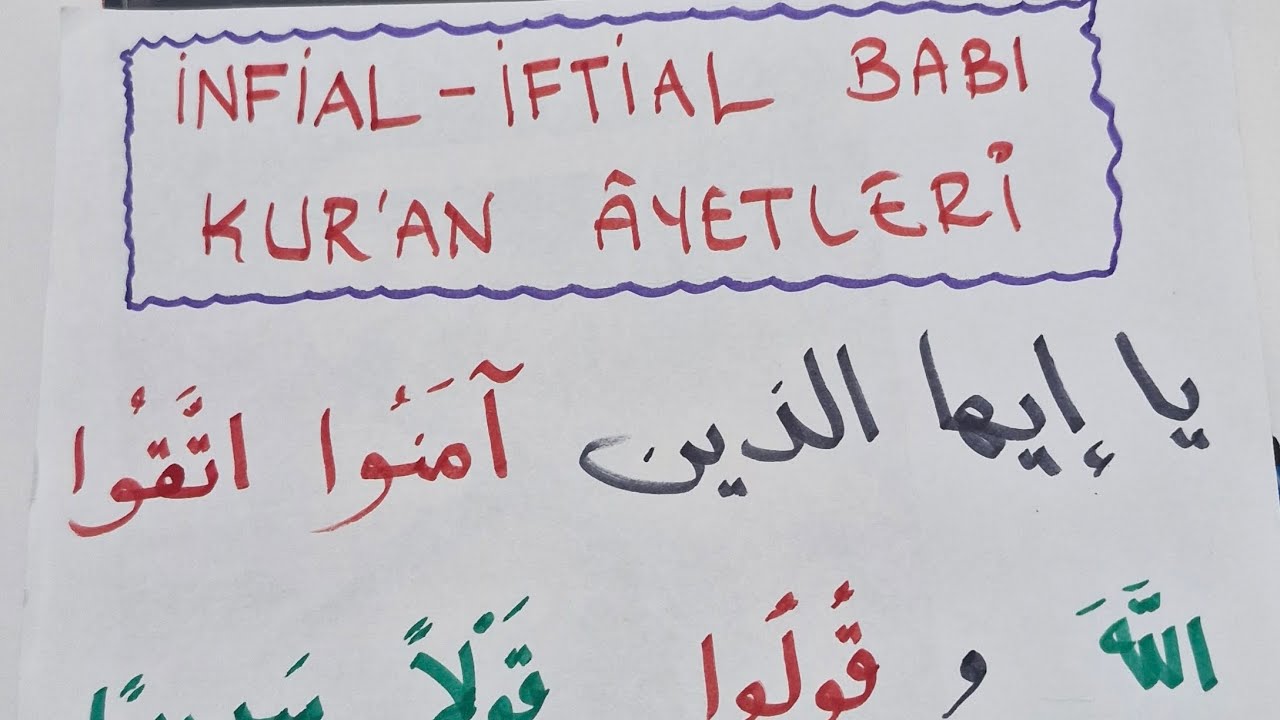 İNFİAL-İFTİAL BABI
KUR'AN ÂYETLERİ
يا إيها الذين آمَنُوا اتَّقُوا
اللَّهَ و قُولُوا قَوْلاً